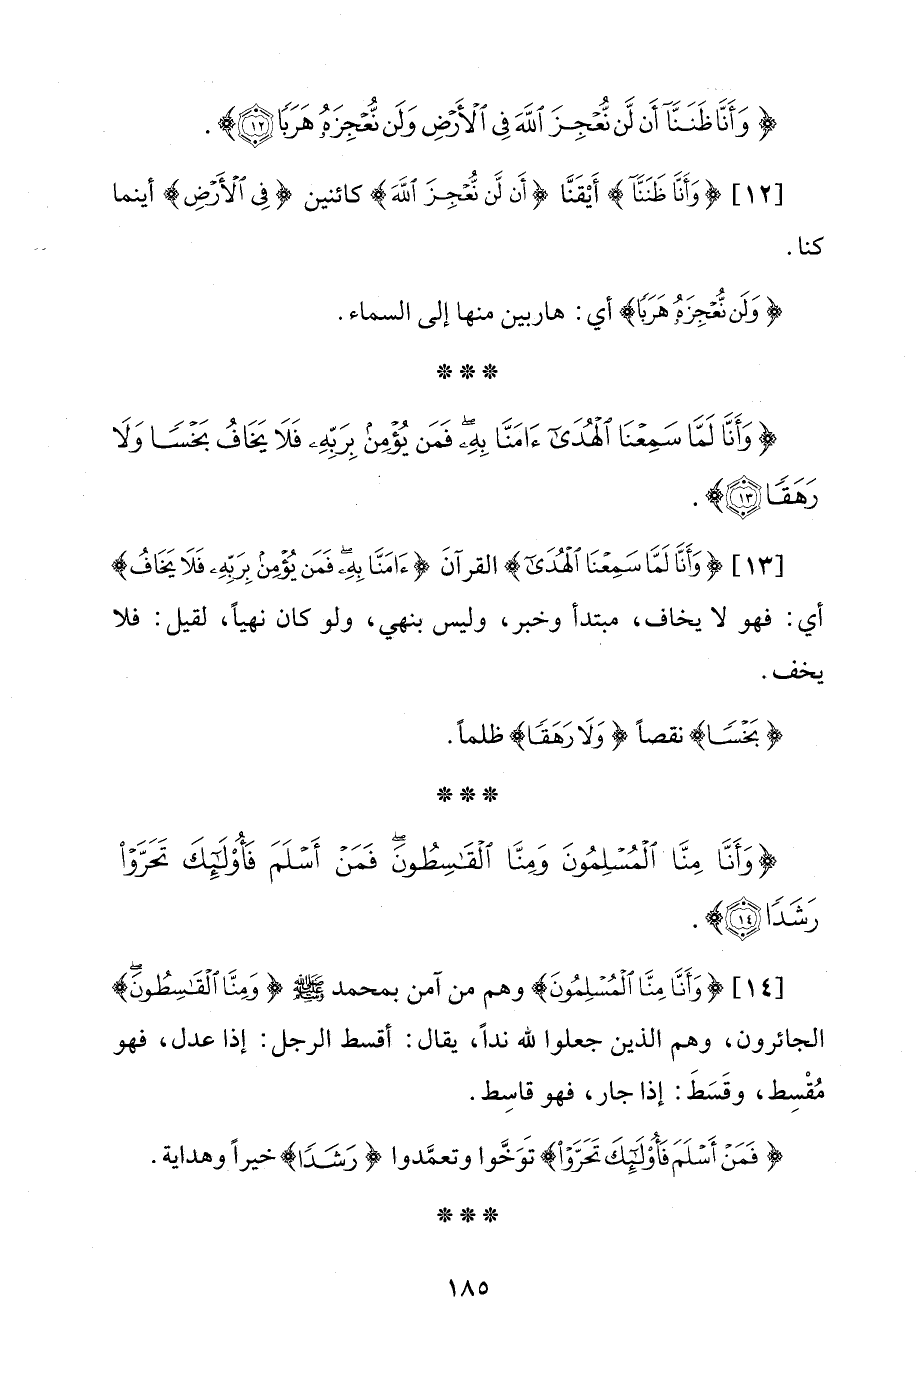 ﴿ وَأَنَّا ظَنَنَّآ أَن لَّن نُّعْجِزَ ٱللَّهَ فِي ٱلْأَرْضِ وَلَن نُّعْجِزَهُۥ هَرَبًا ١٢﴾ .
[١٢] ﴿ وَأَنَّا ظَنَنَّآ ﴾ أَيْقَنَّا ﴿ أَن لَّن نُّعْجِزَ ٱللَّهَ﴾ كائنين ﴿ فِي ٱلْأَرْضِ﴾ أينما
كنا .
﴿ وَلَن نُّعْجِزَهُۥ هَرَبًا﴾ أي: هاربين منها إلى السماء.
* * *
﴿ وَأَنَّا لَمَّا سَمِعْنَا ٱلْهُدَىٰٓ ءَامَنَّا بِهِۦۖ فَمَن يُؤْمِنۢ بِرَبِّهِۦ فَلَا يَخَافُ بَخْسًا وَلَا
رَهَقًا ١٣﴾ .
[١٣] ﴿ وَأَنَّا لَمَّا سَمِعْنَا ٱلْهُدَىٰٓ﴾ القرآنَ ﴿ ءَامَنَّا بِهِۦۖ فَمَن يُؤْمِنۢ بِرَبِّهِۦ فَلَا يَخَافُ﴾
أي: فهو لا يخاف، مبتدأ وخبر، وليس بنهي، ولو كان نهياً، لقيل: فلا
يخف.
﴿ بَخْسًا﴾ نقصاً ﴿ وَلَا رَهَقًا﴾ ظلماً.
* * *
﴿ وَأَنَّا مِنَّا ٱلْمُسْلِمُونَ وَمِنَّا ٱلْقَٰسِطُونَۖ فَمَنْ أَسْلَمَ فَأُو۟لَٰٓئِكَ تَحَرَّوْا۟
رَشَدًا ١٤﴾ .
[١٤] ﴿ وَأَنَّا مِنَّا ٱلْمُسْلِمُونَ﴾ وهم من آمن بمحمد ﷺ ﴿ وَمِنَّا ٱلْقَٰسِطُونَۖ﴾
الجائرون، وهم الذين جعلوا لله نداً، يقال: أقسط الرجل: إذا عدل، فهو
مُقْسِط، وقَسَطَ: إذا جار، فهو قاسِط.
﴿ فَمَنْ أَسْلَمَ فَأُو۟لَٰٓئِكَ تَحَرَّوْا۟﴾ توَخَّوا وتعمَّدوا ﴿ رَشَدًا﴾ خيراً وهداية.
* * *
١٨٥